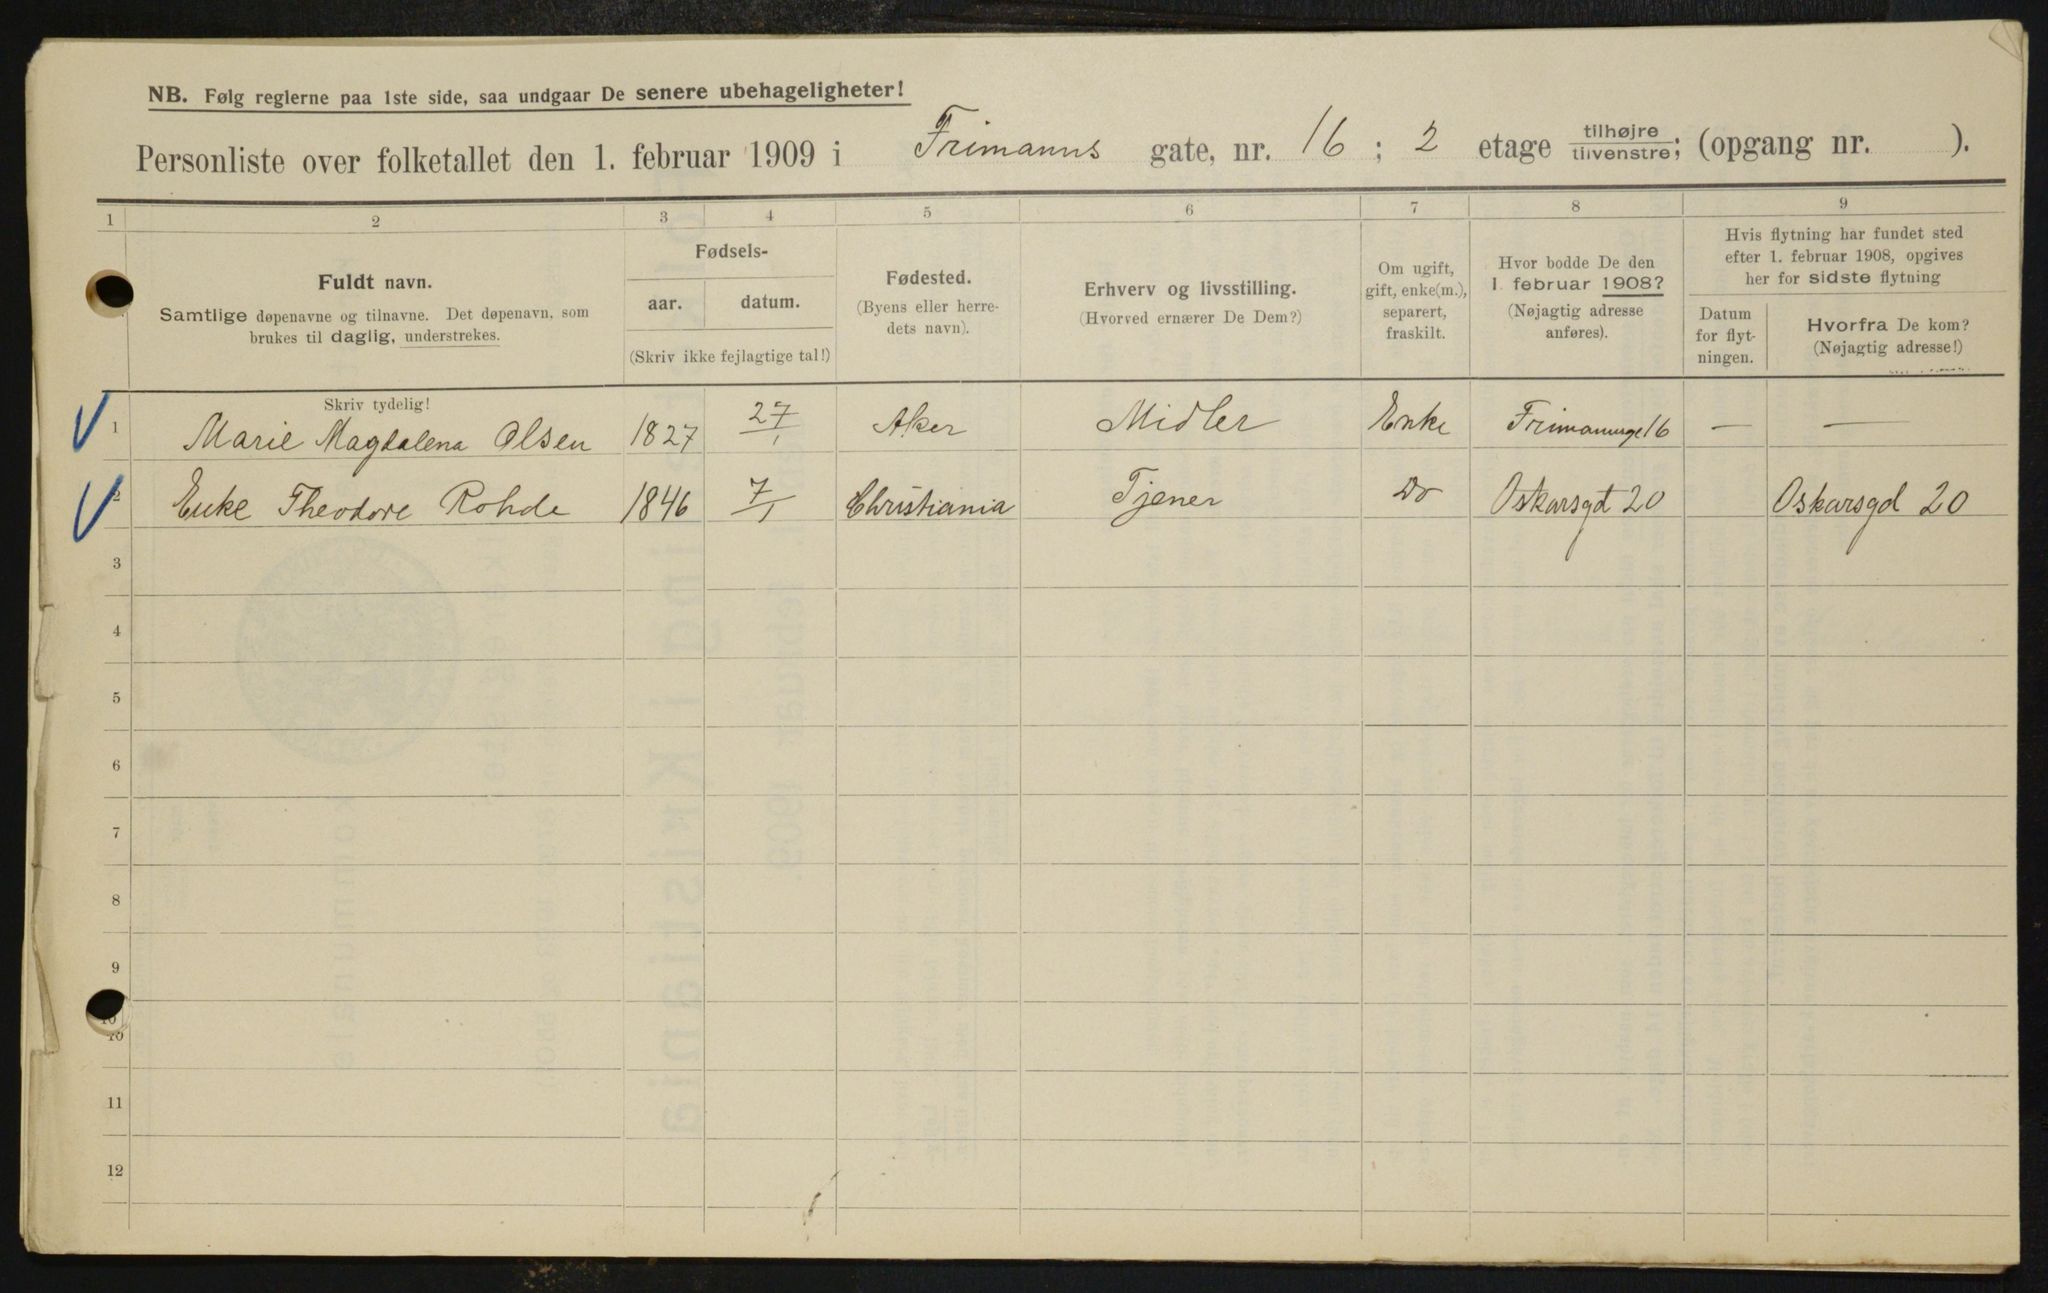 NB. Følg reglerne paa 1ste side, saa undgaar De senere ubehageligheter!
Personliste over folketallet den 1. februar 1909 i Frimanns gate, nr. 16; 2 etage tilhøjre tilvenstre; (opgang nr. ).
1 2 3 4 5 6 7 8 9
Fuldt navn.
Samtlige døpenavne og tilnavne. Det døpenavn, som
brukes til daglig, understrekes.
Fødsels-
aar. datum.
(Skriv ikke fejlagtige tal!)
Fødested.
(Byens eller herre-
dets navn).
Erhverv og livsstilling.
(Hvorved ernærer De Dem?)
Om ugift,
gift, enke(m.),
separert,
fraskilt.
Hvor bodde De den
1. februar 1908?
(Nøjagtig adresse
anføres).
Hvis flytning har fundet sted
efter 1. februar 1908, opgives
her for sidste flytning
Datum
for flyt-
ningen.
Hvorfra De kom?
(Nøjagtig adresse!)
Skriv tydelig!
1 Marie Magdalena Olsen 1827 27/1 Aker Midler Enke Frimannsge 16 — —
2 Enke Theodore Rohde 1846 7/1 Christiania Tjener Do Oskarsgt 20 Oskarsgd 20
3
4
5
6
7
8
9
10
10
11
12